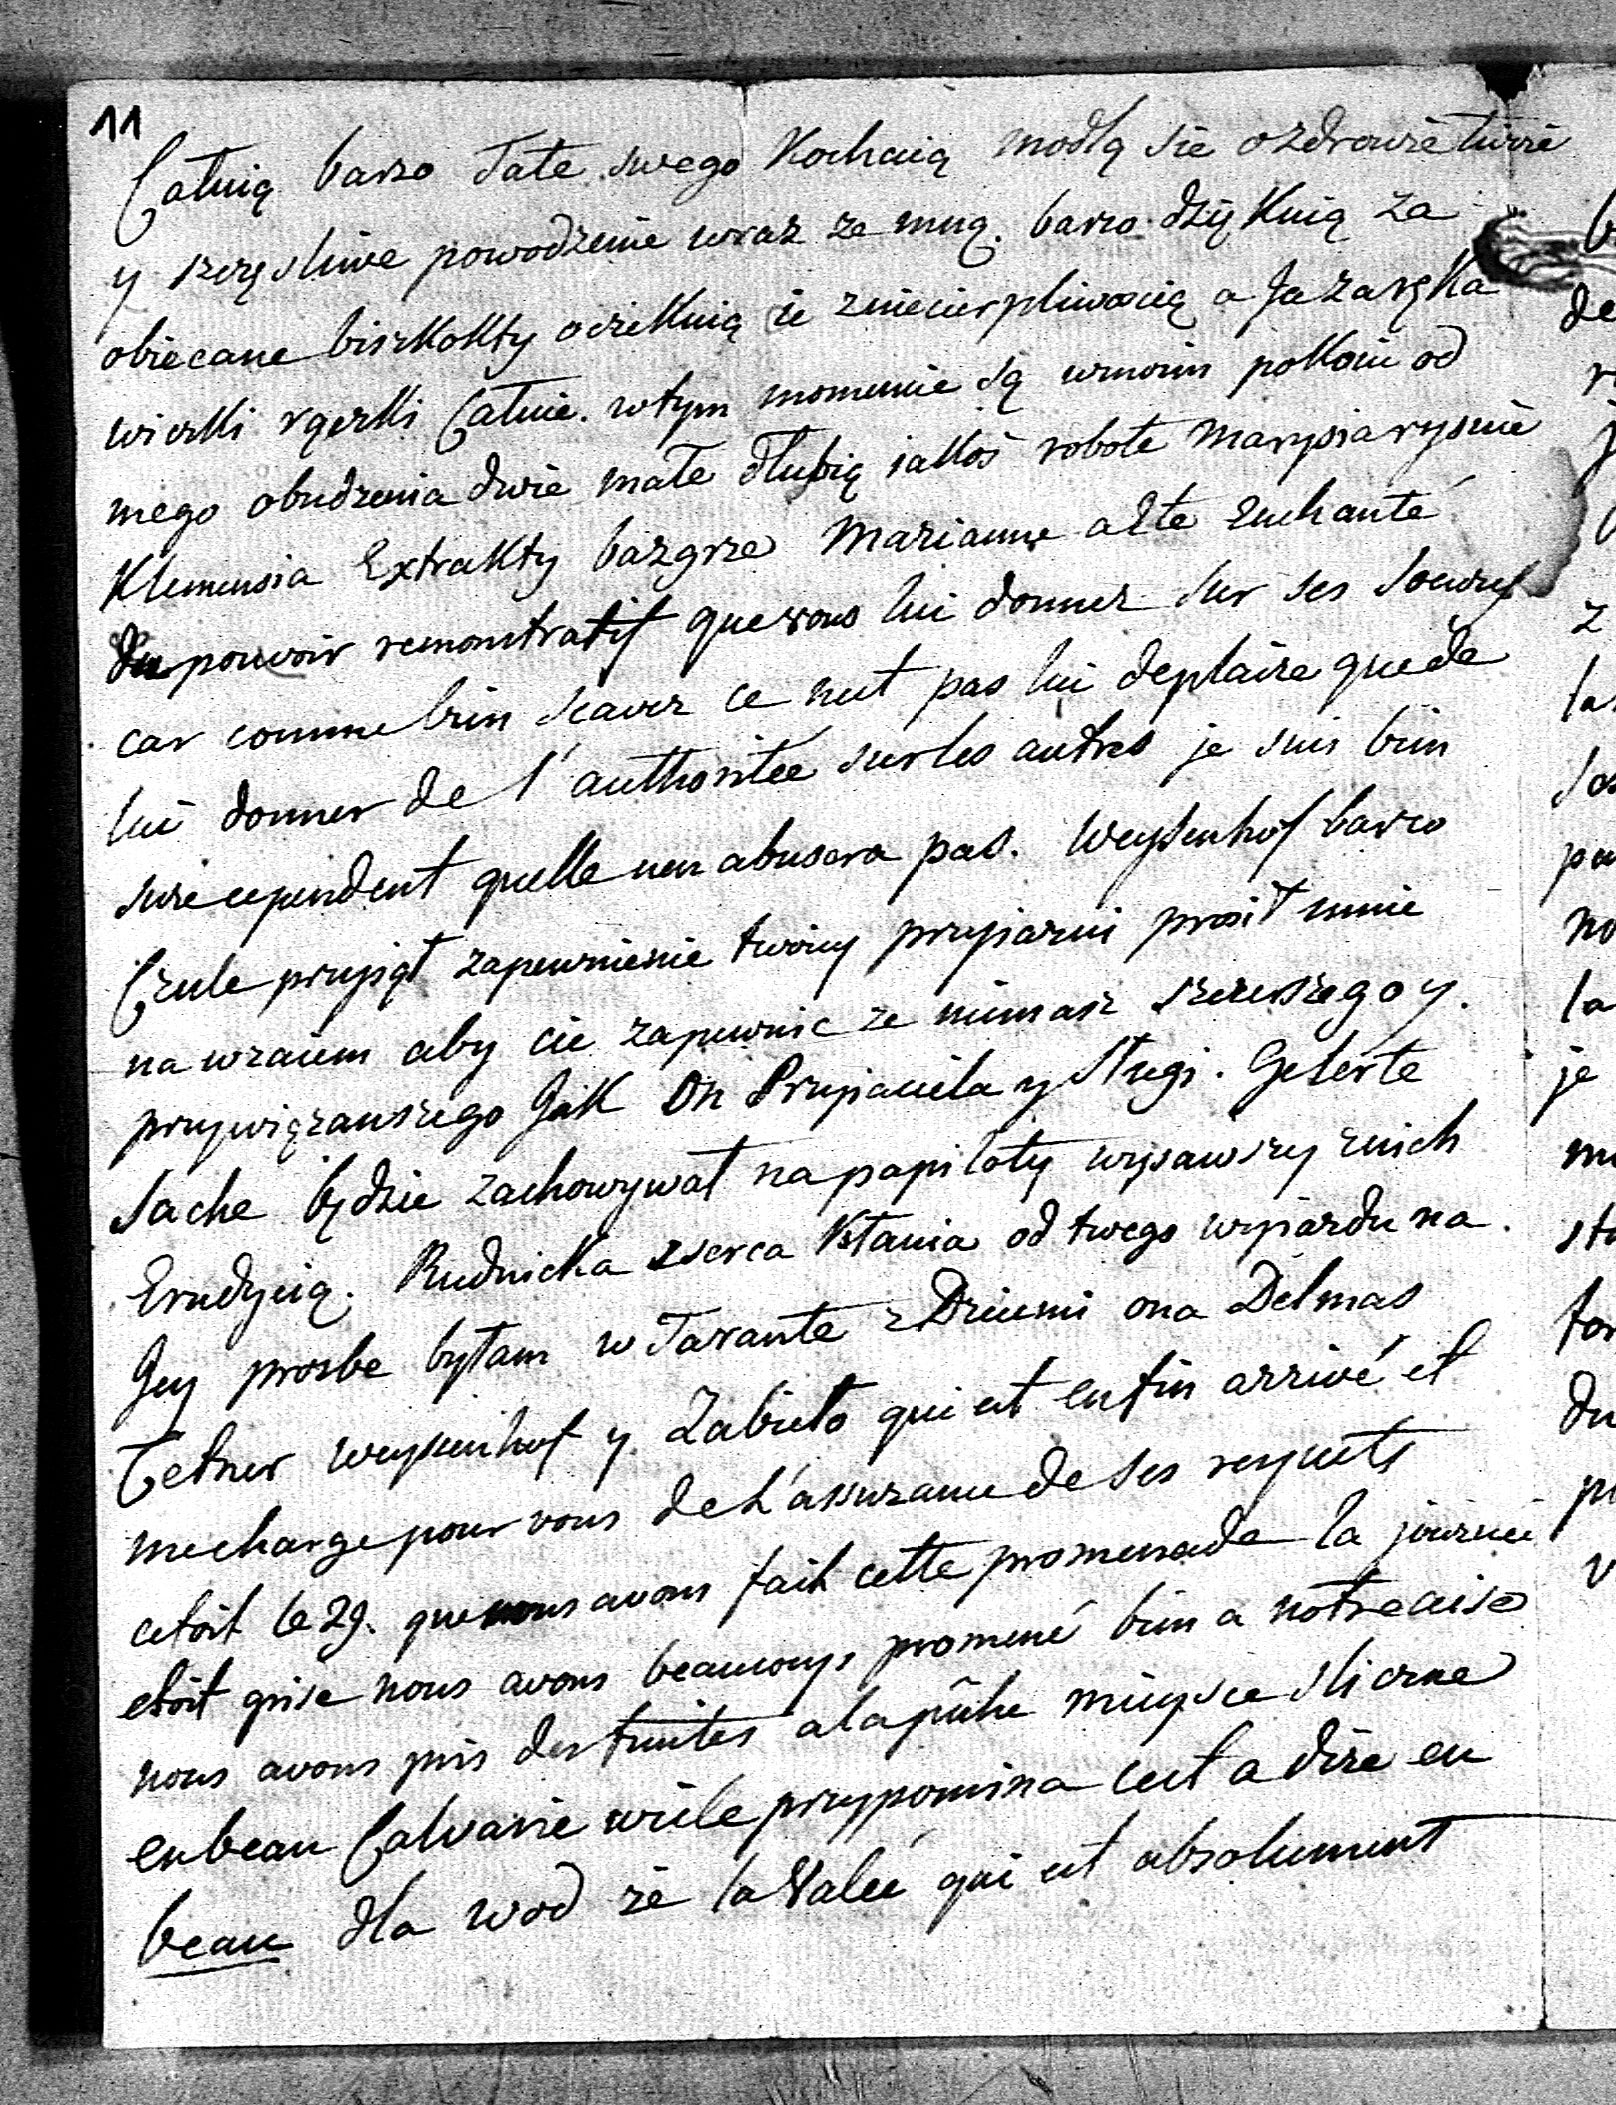 11
Całuią barzo Tate swego Kochaią modlą sie o zdrowie twoie
y szczęsliwe powodzenie wraz ze mną. barzo dzięKuią za
obiecane biszKoKty oczeKuią ie zniecierpliwoscią a Ja za ręKa
wierzKi rączKi Całuie. w tym momencie są wmoim poKoiu od
mego obudzenia dwie małe dłubią iaKoś robote Marysia rysuie
Klemensia ExtraKty bazgrze Marianne a eté enchanté
du pouvoir remonstratif que vous lui donnez sur ses soeurs
car comme bien scavez ce nest pas lui deplaire que de
lui donner de l'authoritée sur les autres je suis bien
sure cependent quelle nen abusera pas. Weysenhof barzo
Czule przyiął zapewnienie twoiey przyiazni prosił mnie
na wzaiem aby cie zapewnic ze niemasz szczerszego y.
przywięzanszego JaK On Przyiaciela y Sługi. Gelerte
Sache będzie zachowywał na papiloty wyssawszy znich
Erudycią. RudnicKa zserca Kłania od twego wyiazdu na
Jey prozbe byłam w Tarante z Dziećmi ona Delmas
Cetner Weysenhof y Zabieło qui est enfin arrivé et
me charge pour vous de L'assurance de ses respects
cetoit le 29. que nous avons fait cette promenade la journée
etoit grise nous avons beaucoup promené bien a notre aise
nous avons pris des truites a la pêche mieysce sliczne
en beau Calvarie wiele przypomina cest a dire en
beau dla wod ze la Valeé qui est absolument
b
de
r
j
z
la
so
pa
no
la
je
mo
stu
for
du
pu
v